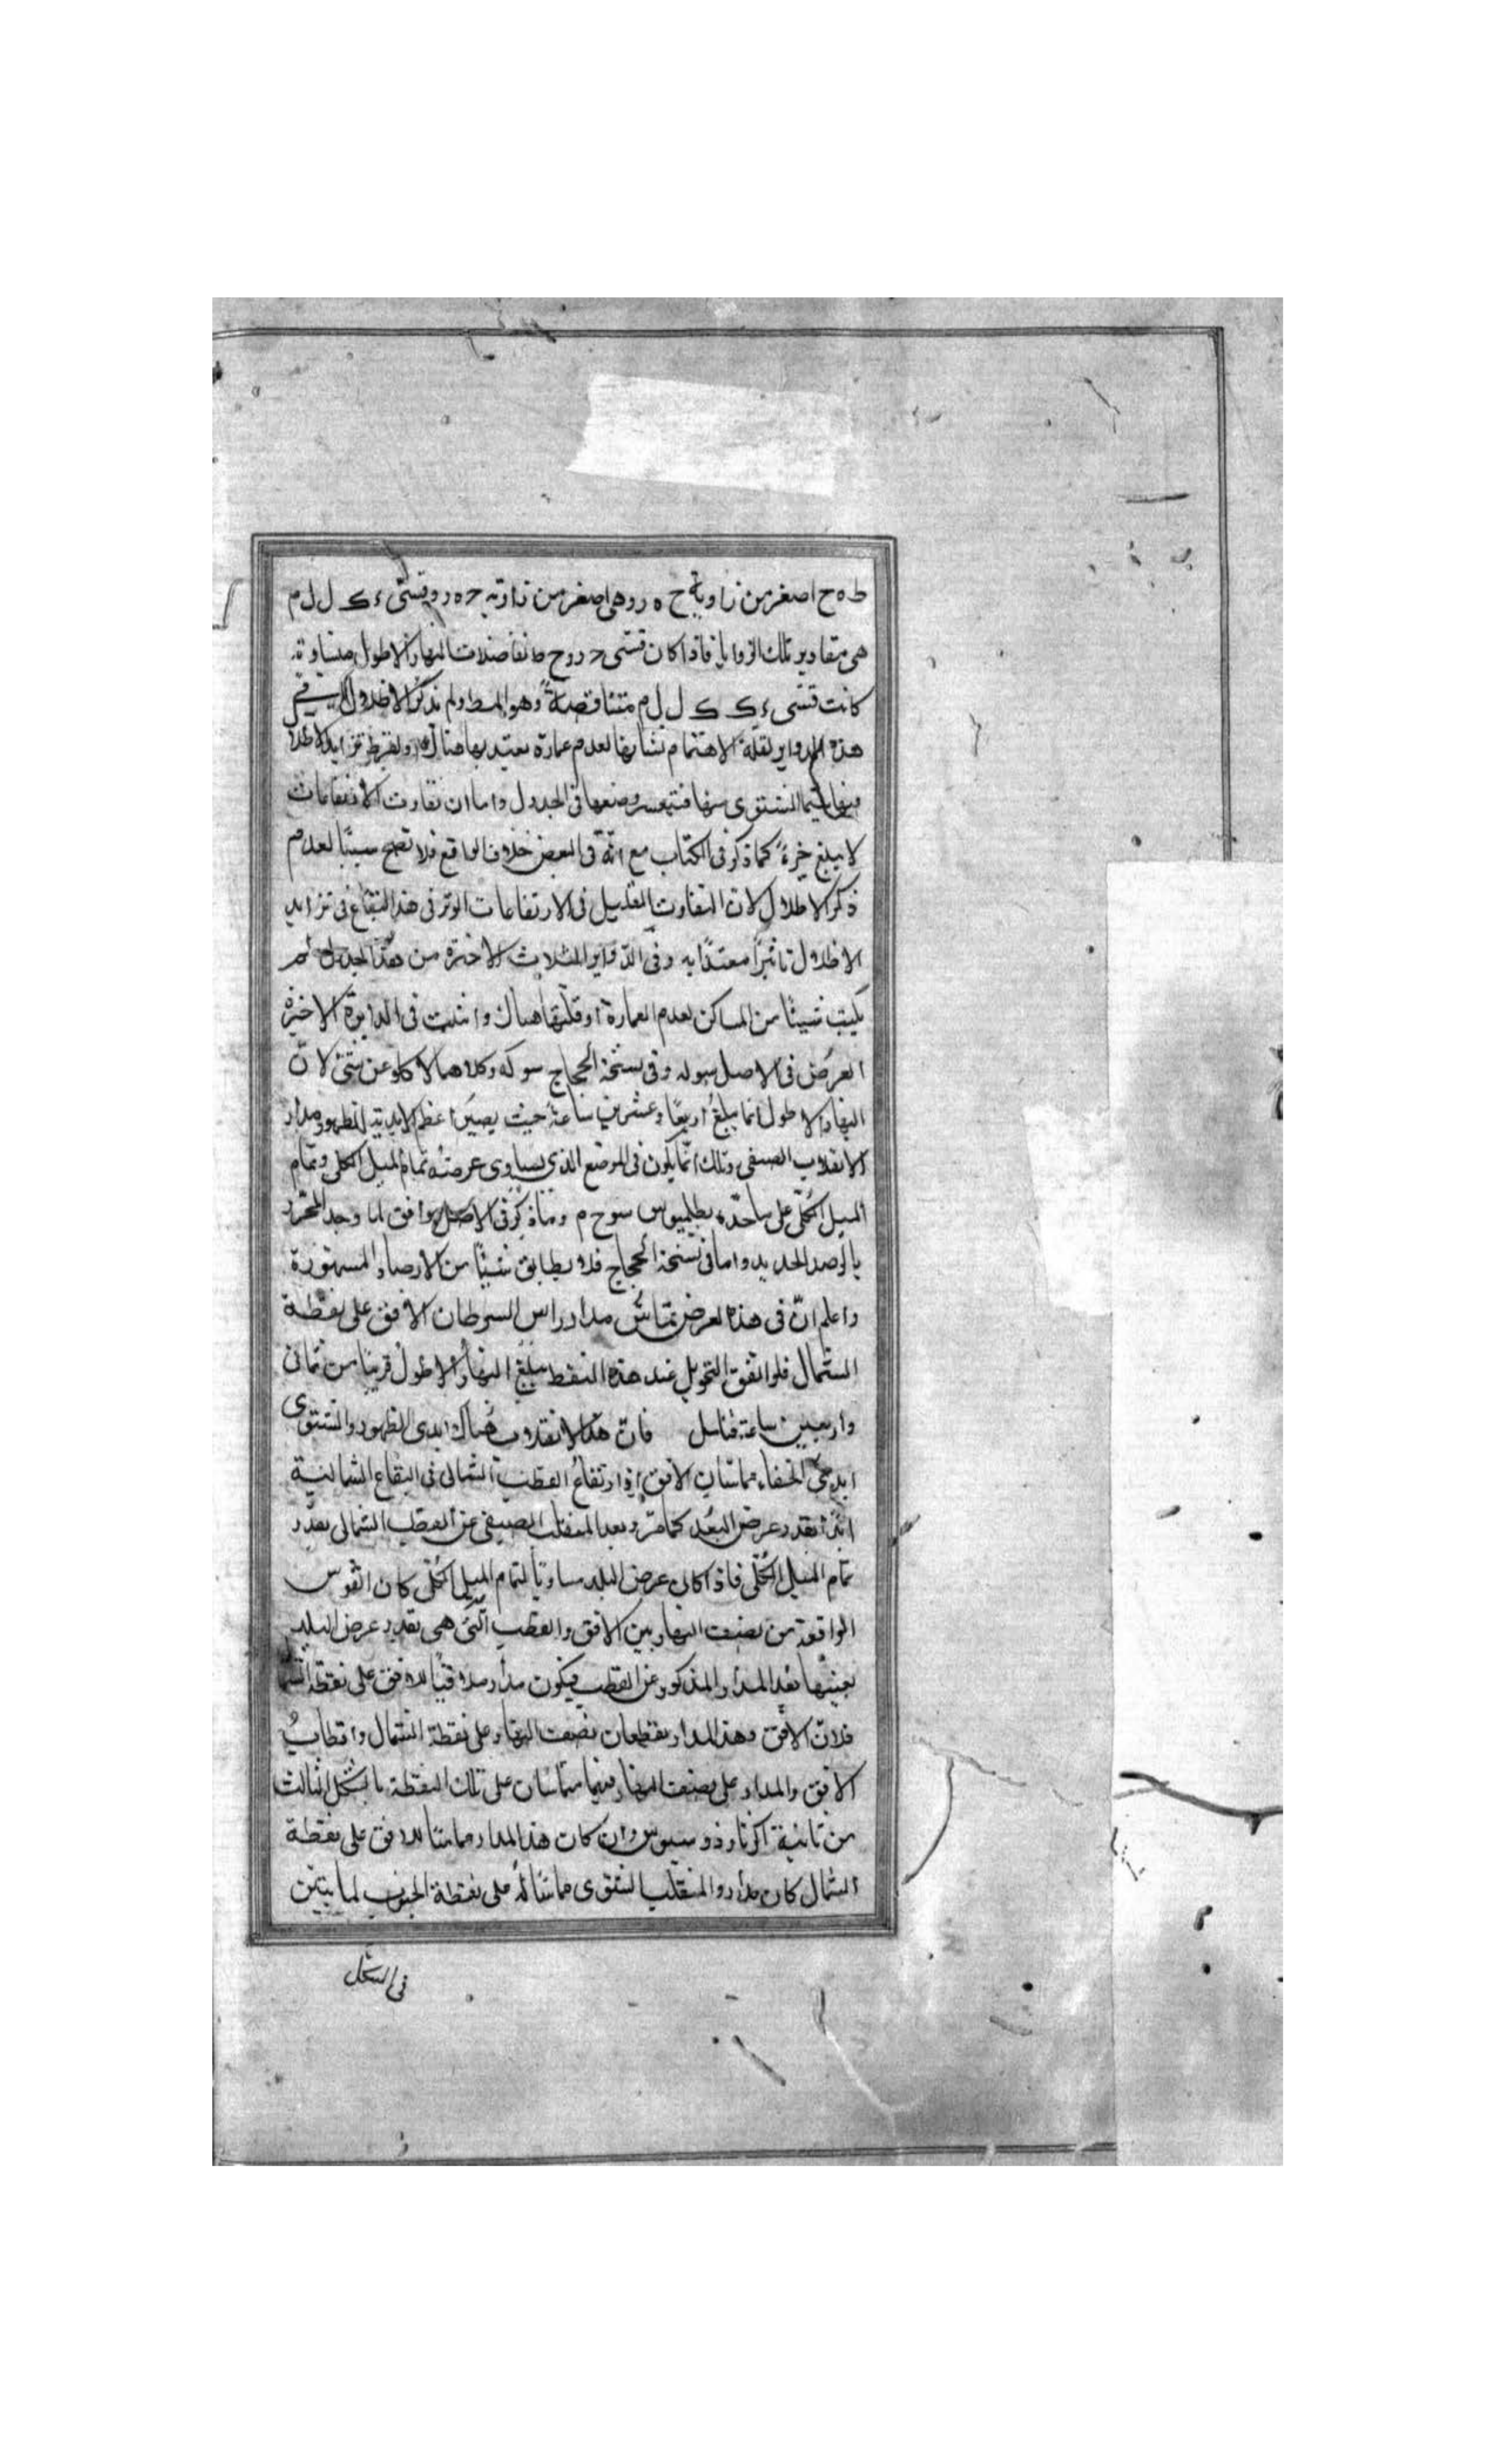 ط ه ح اصغر من زاوية ح ه ر وهى اصغر من زاوية ح ه ر وقسى ء ك ل ل م
هى مقادير تلك الزوايا فاذا كان قسى ح د وح ط تفاضلات النهار الاطول متساوية
كانت قسى ى ك ك ل ل م متناقصة وهو المط ولم نذكر الاظلال فى
هذه الدواير لقلة الاهتمام بشانها لعدم عمارة يعتد بها هناك ولفرط تزايد الاظلال
فيها سيما الشتوى منها فتيعسر وضعها فى الجدول واما ان تفاوت الارتفاعات
لا يبلغ جزءً كما ذكر فى الكتاب مع انه فى البعض خلاف الواقع فلا تصح سببًا لعدم
ذكر الاظلال لان التفاوت القليل فى الارتفاعات الوتر فى هذه البقاع فى تزايد
الاظلال تاثيرًا معتدًا به وفى الدواير الثلاث الاخيرة من هذا الجدول لم
يكتب شيئًا من المساكن لعدم العمارة او قلتها هناك واثبت فى الدايرة الاخيرة
العرض فى الاصل سوله وفى نسخة الحجاج سوكه وكلاهما لا يخلو عن شئ لان
النهار الاطول انما يبلغ اربعًا وعشرين ساعة حيث يصير اعظم الابدية الظهور مدار
الانقلاب الصيفى وذلك انما يكون فى الموضع الذى يساوى عرضه تمام الميل الكلى وتمام
الميل الكلى على ما حده بطلميوس سوح م وما ذكر فى الاصل يوافق لما وجد المحرر
بالرصد الجديد واما فى نسخة الحجاج فلا يطابق شيئًا من الارصاد المشهورة
واعلم ان فى هذه العرض يماس مدار راس السرطان الافق على نقطة
الشمال فلو اتفق التحويل عند هذه النقط يبلغ النهار الاطول قريبًا من ثمانى
واربعين ساعة فتامل فان هذا الانقلاب هناك ابدى الظهور والشتوى
ابدى الخفاء مماسان الافق اذ ارتفاع القطب الشمالى فى البقاع الشمالية
ابدًا بقدر عرض البلد كما مر وبعد المنقلب الصيفى عن القطب الشمالى بقدر
تمام الميل الكلى فاذا كان عرض البلد مساويًا لتمام الميل الكلى كان القوس
الواقعة من نصف النهار بين الافق والقطب التى هى بقدر عرض البلد
بعينها بعد المدار المذكور عن القطب فيكون مدار ملاقيًا للافق على نقطة الشمال
فلان الافق وهذا المدار يقطعان نصف النهار على نقطة الشمال واقطاب
الافق والمدار على نصف النهار فيهما متماسان على تلك النقطة بالشكل الثالث
من ثانية اكر ثاوذوسيوس وان كان هذا المدار مماسًا للافق على نقطة
الشمال كان مدار والمنقلب الشتوى مماسًا له على نقطة الجنوب لما يتبين
فى الشكل